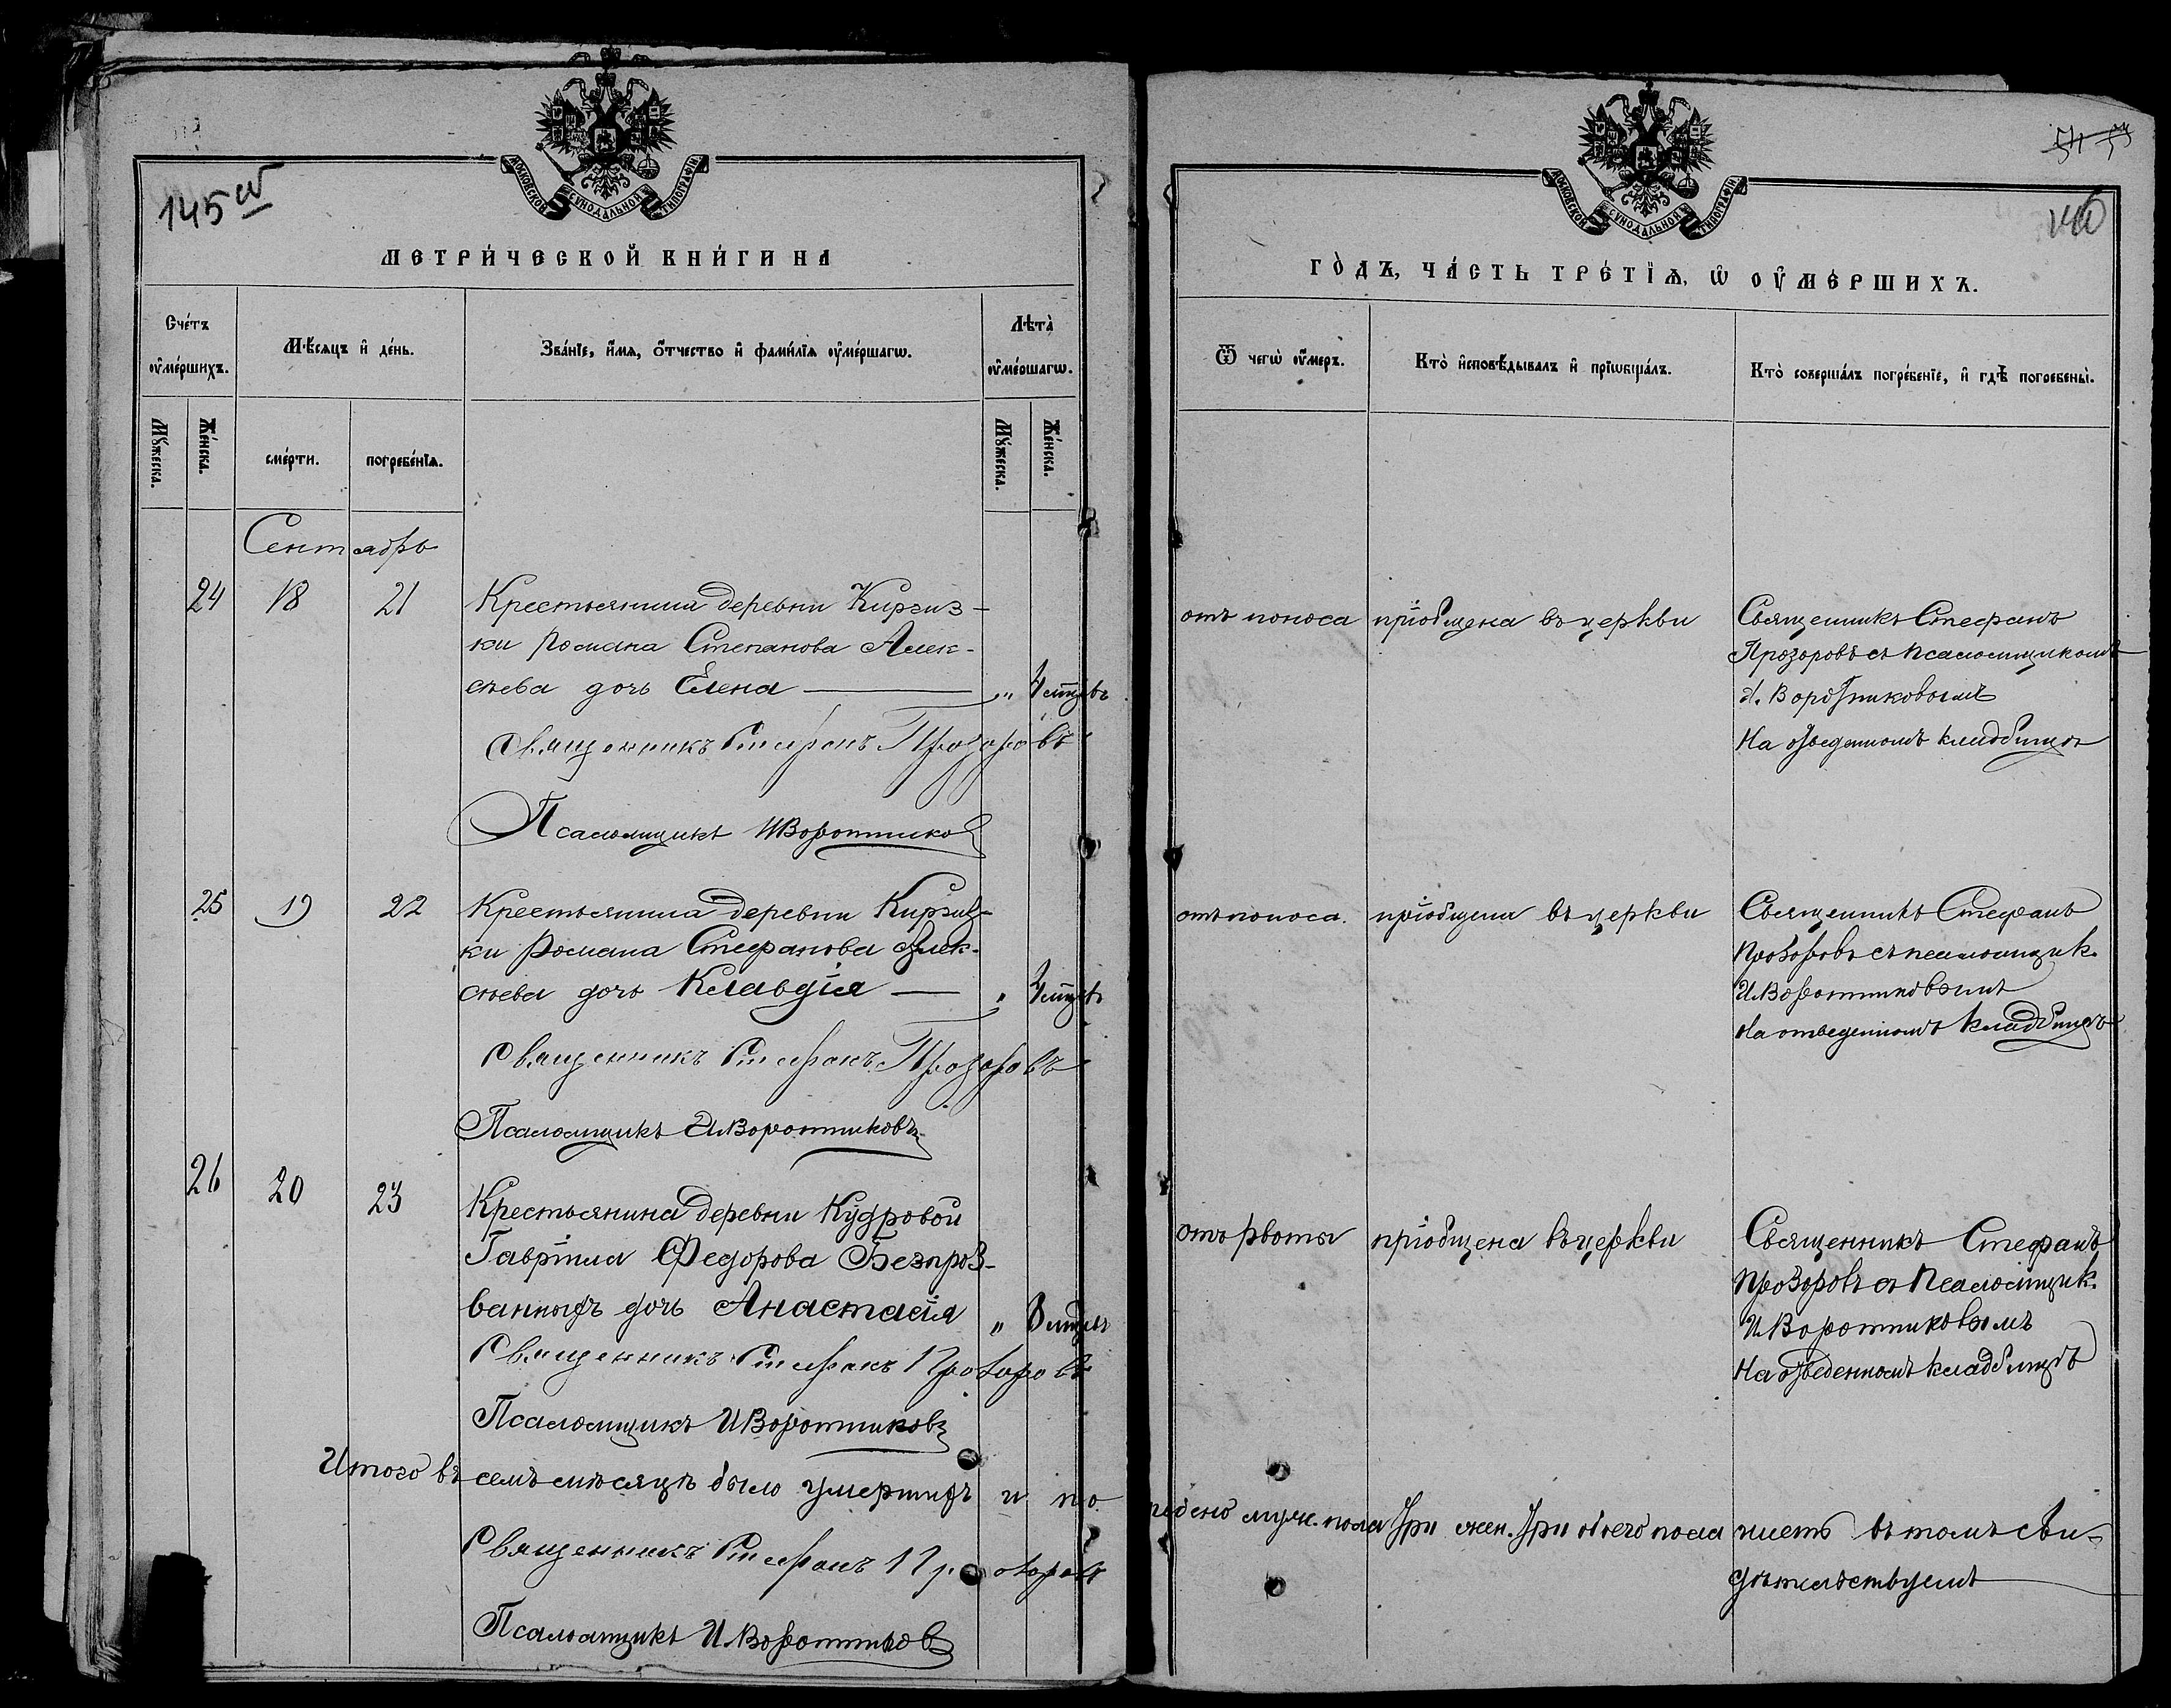 МОСКОВСКОЙ СѴНОДАЛЬНОЙ ТИПОГРАФІИ
145 об
МЕТРИ́ЧЕСКОЙ КНИ́ГИ НА
Сче́тъ ᲂу҆ме́ршихъ.
Мѣ́сяцъ и҆ де́нь.
Зва́нїе, и҆́мя, ѻ҆́тчество и҆ фами́лїя ᲂу҆ме́ршагѡ.
Лѣта̀ ᲂу҆ме́ршагѡ.
Мꙋ́жеска.
Же́нска.
сме́рти.
погребе́нїѧ.
Мꙋ́жеска.
Же́нска.
Сентябрь
24 18 21 Крестьянина деревни Киргиз-
ки Романа Степанова Алек-
сѣева дочь Елена — „
Священникъ Стефанъ Прозоровъ
Псаломщикъ И Воротников
25 19 22 Крестьянина деревни Киргиз-
ки Романа Стефанова Алек-
сѣева дочь Клавдія — „
Священникъ Стефанъ Прозоровъ
Псаломщикъ И Воротниковъ
26 20 23 Крестьянина деревни Кудровой
Гавріила Федорова Безпроз-
ванныхъ дочь Анастасія „
Священникъ Стефанъ Прозоровъ
Псаломщикъ И Воротниковъ
Итого въ семъ мѣсяцѣ было умершихъ и по
Священникъ Стефанъ Прозоровъ
Псаломщикъ И Воротниковъ
МОСКОВСКОЙ СѴНОДАЛЬНОЙ ТИПОГРАФІИ
ГО́ДЪ, ЧА́СТЬ ТРЕ́ТЇѦ, Ѡ҆ ОУ҆МЕ́РШИХЪ.
Ѿ чегѡ̀ ᲂу҆́меръ.
Кто̀ и҆сповѣ́дывалъ и҆ прїѡбща́лъ.
Кто̀ соверша́лъ погребе́нїе, и҆ гдѣ̀ погребены̀.
отъ поноса пріобщена въ церкви Священникъ Стефанъ
Прозоровъ съ псаломщикомъ
И. Воротниковымъ
На отведенномъ кладбищѣ
отъ поноса. пріобщена въ церкви Священникъ Стефанъ
Прозоровъ съ псаломщик.
И Воротниковымъ
На отведенномъ кладбищѣ
отъ рвоты пріобщена въ церкви Священникъ Стефанъ
Прозоровъ съ Псаломщик.
И Воротниковымъ
На отведенномъ кладбищѣ
гребено муж. пола три жен. три обоего пола шесть въ томъ сви-
дѣтельствуемъ